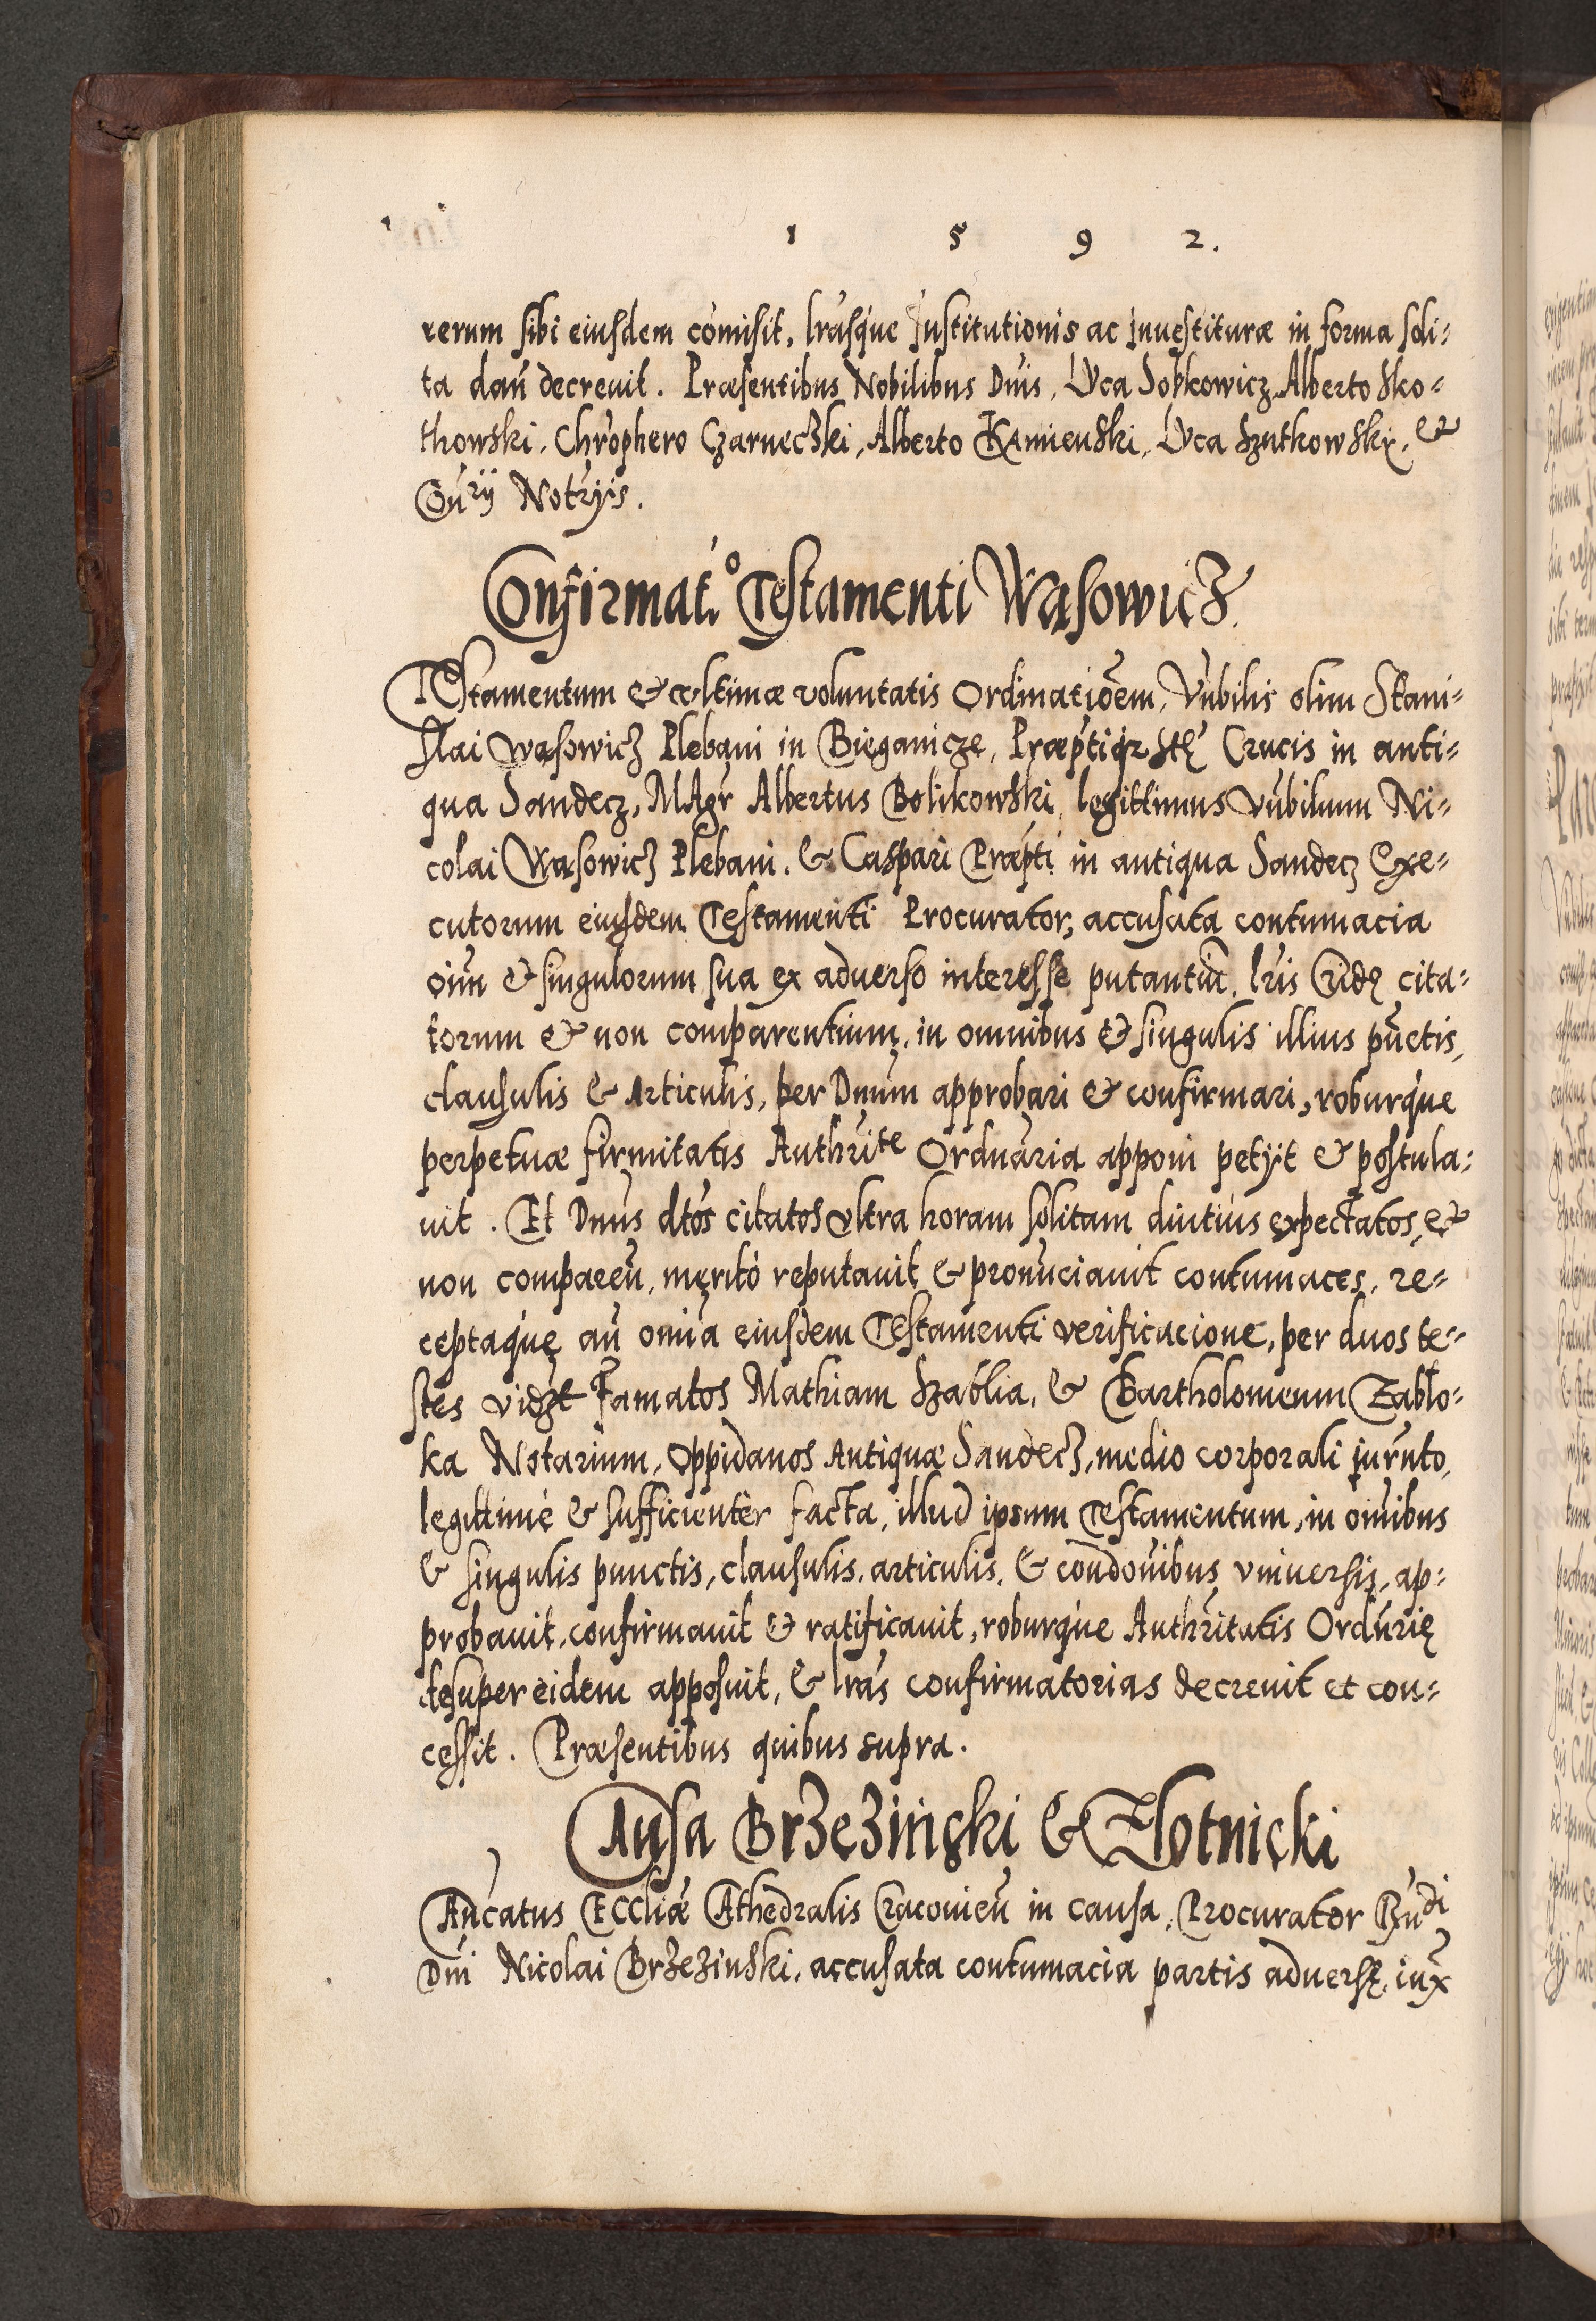 1 5 9 2.
rerum sibi eiusdem com̄isit, lrāsque Institutionis ac Inuestituræ in forma soli-
ta dan̄ decreuit. Præsentibus Nobilibus Dn̄is, Luca Sobkowicz, Alberto Sko-
thowski, Chrophero Czarneczki, Alberto Kamienski, Luca Szutkowsky, &
Notr̄ijs.
Confirmat.o Testamenti Wąsowicz.
TEstamentum & vltimæ voluntatis Ordinatiōem, Vn̄bilis olim Stani-
slai Wąsowicz Plebani in Bieganicze, Præp̄tiqz Stę Crucis in anti-
qua Sandecz, MAgr̄ Albertus Bolikowski, legittimus Vn̄bilium Ni-
colai Wąsowicz Plebani, & Caspari Præp̄ti in antiqua Sandecz Exe-
cutorum eiusdem Testamenti Procurator, accusata contumacia
oīm & singulorum sua ex aduerso interesse putantiū, lrīs cita-
torum & non comparentium, in omnibus & singulis illius pūctis,
clausulis & Articulis, per Dn̄um approbari & confirmari, roburque
perpetuæ firmitatis Authr̄ite Ordn̄aria apponi petijt & postula-
uit. Et Dn̄us dtōs citatos vltra horam solitam diutius expectatos, &
non compareñ, meritò reputauit & pronūciauit contumaces, re-
ceptaque an̄ omīa eiusdem Testamenti verificacione, per duos te-
stes vidzt Famatos Mathiam Szablia, & Bartholomeum Zablo-
ka Notarium, Oppidanos Antiquæ Sandecz, medio corporali iurn̄to,
legittimè & sufficientèr facta, illud ipsum Testamentum, in om̄ibus
& singulis punctis, clausulis, articulis, & con̄dōnibus vniuersis, ap-
probauit, confirmauit & ratificauit, roburque Authr̄itatis Ordn̄rię
desuper eidem apposuit, & lrās confirmatorias decreuit et con-
cessit. Præsentibus quibus supra.
CAusa Brzezinski & Zlotnicki
Ecclīæ CAthedralis Cracouieñ in causa, Procurator
Dn̄i Nicolai Brzezinski, accusata contumacia partis aduersę, iux̄